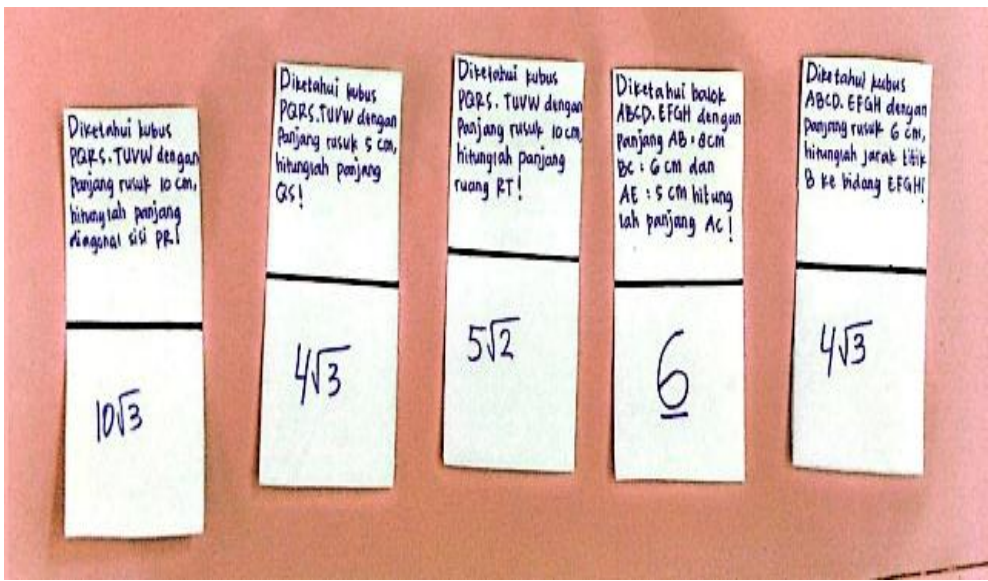 Diketahui kubus
PQRS.TUVW dengan
Panjang rusuk 10 cm,
hitunglah panjang
diagonal sisi PR!
10√3
Diketahui kubus
PQRS.TUVW dengan
Panjang rusuk 5 cm,
hitunglah panjang
QS!
4√3
Diketahui kubus
PQRS. TUVW dengan
Panjang rusuk 10 cm,
hitunglah panjang
ruang RT!
5√2
Diketahui balok
ABCD.EFGH dengan
Panjang AB : 8 cm
BC : 6 cm dan
AE : 5 cm hitung
lah panjang AC!
6
Diketahui kubus
ABCD. EFGH dengan
Panjang rusuk 6 cm,
hitunglah jarak titik
B ke bidang EFGH!
4√3